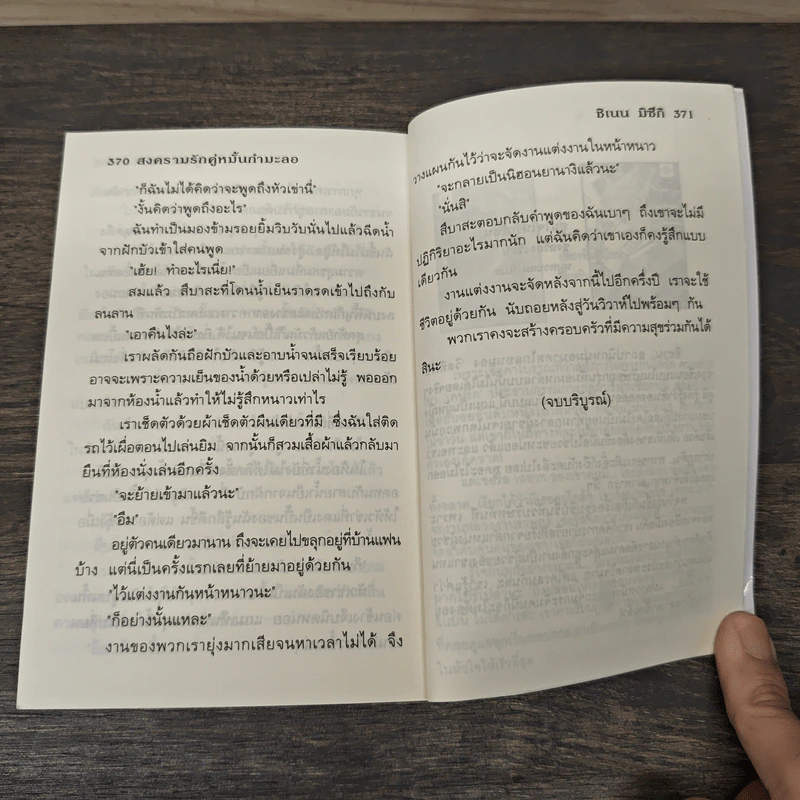 370 สงครามรักคู่หมั้นกำมะลอ
"ก็ฉันไม่ได้คิดว่าจะพูดถึงหัวเข่านี่"
"งั้นคิดว่าพูดถึงอะไร"
ฉันทำเป็นมองข้ามรอยยิ้มวิบวับนั่นไปแล้วฉีดน้ำ
จากฝักบัวเข้าใส่คนพูด
"เฮ้ย! ทำอะไรเนี่ย!"
สมแล้ว สึบาสะที่โดนน้ำเย็นราดรดเข้าไปถึงกับ
ลนลาน
"เอาคืนไงล่ะ"
เราผลัดกันถือฝักบัวและอาบน้ำจนเสร็จเรียบร้อย
อาจจะเพราะความเย็นของน้ำด้วยหรือเปล่าไม่รู้ พอออก
มาจากห้องน้ำแล้วทำให้ไม่รู้สึกหนาวเท่าไร
เราเช็ดตัวด้วยผ้าเช็ดตัวผืนเดียวที่มี ซึ่งฉันใส่ติด
รถไว้เผื่อตอนไปเล่นยิม จากนั้นก็สวมเสื้อผ้าแล้วกลับมา
ยืนที่ห้องนั่งเล่นอีกครั้ง
"จะย้ายเข้ามาแล้วนะ"
"อืม"
อยู่ตัวคนเดียวมานาน ถึงจะเคยไปขลุกอยู่ที่บ้านแฟน
บ้าง แต่นี่เป็นครั้งแรกเลยที่ย้ายมาอยู่ด้วยกัน
"ไว้แต่งงานกันหน้าหนาวนะ"
"ก็อย่างนั้นแหละ"
งานของพวกเรายุ่งมากเสียจนหาเวลาไม่ได้ จึง
ชิเนน มิซึกิ 371
วางแผนกันไว้ว่าจะจัดงานแต่งงานในหน้าหนาว
"จะกลายเป็นนิฮอนยานางิแล้วนะ"
"นั่นสิ"
สึบาสะตอบกลับคำพูดของฉันเบาๆ ถึงเขาจะไม่มี
ปฏิกิริยาอะไรมากนัก แต่ฉันคิดว่าเขาเองก็คงรู้สึกแบบ
เดียวกัน
งานแต่งงานจะจัดหลังจากนี้ไปอีกครึ่งปี เราจะใช้
ชีวิตอยู่ด้วยกัน นับถอยหลังสู่วันวิวาห์ไปพร้อมๆ กัน
พวกเราคงจะสร้างครอบครัวที่มีความสุขร่วมกันได้
สินะ
(จบบริบูรณ์)